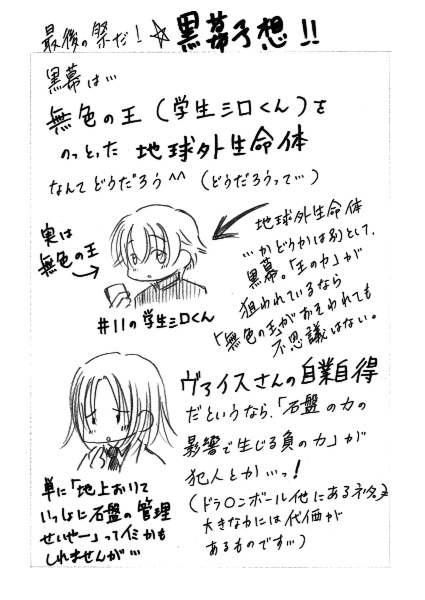 最後の祭だ！☆黒幕予想!!
黒幕は…
無色の王（学生シロくん）を
のっとった 地球外生命体
なんてどうだろう^^（どうだろうって…）
実は
無色の王
地球外生命体
…かどうかは別として、
黒幕。「王の力」が
狙われているなら
「無色の王」がおそわれても
不思議はない。
#11の学生シロくん
ヴァイスさんの自業自得
だというなら、「石盤の力の
影響で生じる負の力」が
犯人とか…っ！
（ドラ〇ンボール他にあるネタ。
大きな力には代価が
あるものです…）
単に「地上おりて
いっしょに石盤の管理
せいやー」ってイミかも
しれませんが…